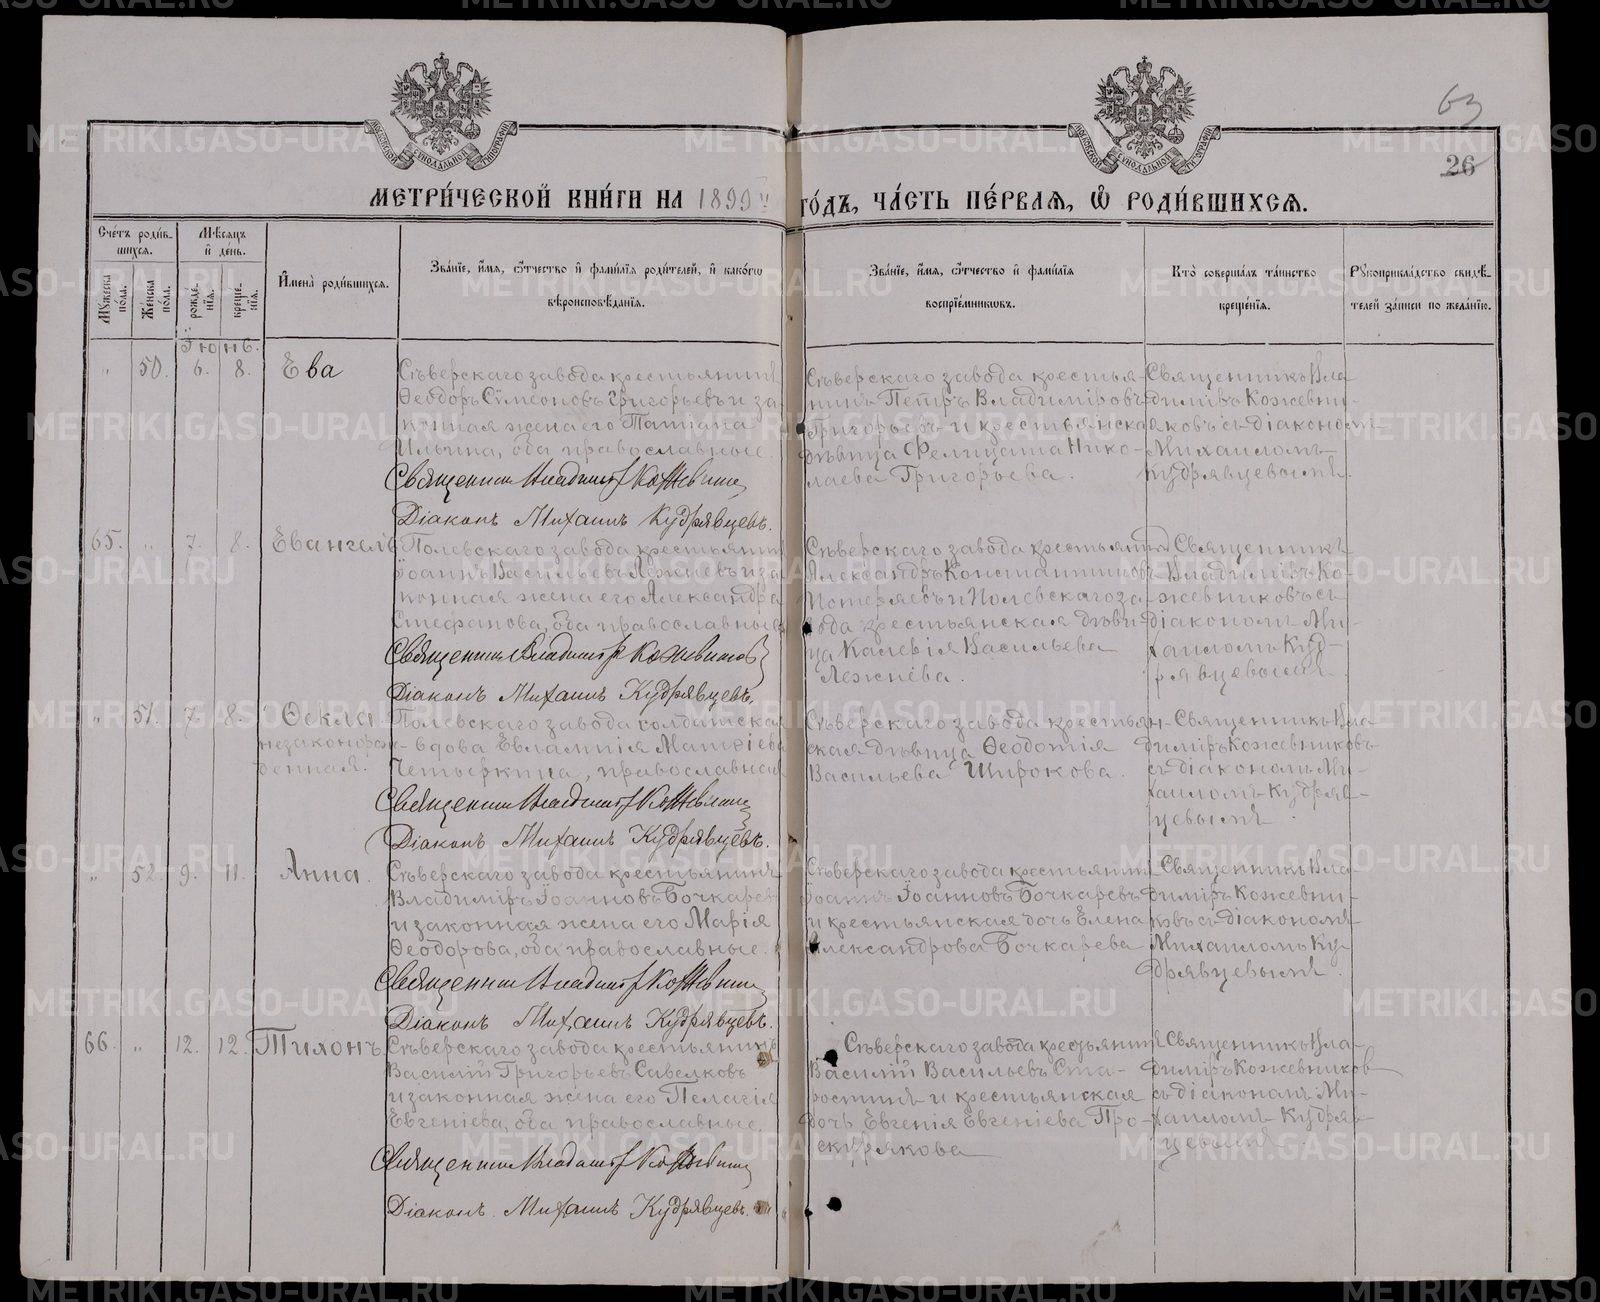 63
26
МОСКОВСКОЙ СѴНОДАЛЬНОЙ ТИПОГРАФІИ
МОСКОВСКОЙ СѴНОДАЛЬНОЙ ТИПОГРАФІИ
МЕТРИ́ЧЕСКОЙ КНИ́ГИ НА 1899 ГО́ДЪ, ЧА́СТЬ ПЕ́РВАЯ, Ѡ РОДИ́ВШИХСЯ.
Сче́тъ роди́в-
шихся.
Му́жеска по́ла.
Же́нска по́ла.
Мѣ́сяцъ
и҆ де́нь.
рожде́нїя.
креще́нїя.
И҆мена̀ роди́вшихся.
Зва́нїе, и҆́мя, ѻ҆́тчество и҆ фами́лїя роди́телей, и҆ како́гѡ
вѣроисповѣ́данїя.
Зва́нїе, и҆́мя, ѻ҆́тчество и҆ фами́лїя
воспрїе́мникѡвъ.
Кто̀ соверша́лъ та́инство
креще́нїя.
Рꙋкоприкла́дство свидѣ́-
телей за́писи по жела́нїю.
Іюнь.
" 50. 6. 8. Ева
Сѣверскаго завода крестьянинъ
Ѳеодоръ Сѵмеоновъ Григорьевъ и за-
конная жена его Татіана
Ильина, оба православные.
Священникъ Владиміръ Кожевниковъ
Діаконъ Михаилъ Кудрявцевъ.
Сѣверскаго завода крестья-
нинъ Петръ Владиміровъ
Григорьевъ и крестьянская
дѣвица Фелицата Нико-
лаева Григорьева.
Священникъ Вла-
диміръ Кожевни-
ковъ съ діакономъ
Михаиломъ
Кудрявцевымъ.
65. " 7. 8. Евангелъ
Полевскаго завода крестьянинъ
Іоаннъ Васильевъ Лежневъ и за-
конная жена его Александра
Стефанова, оба православные
Священникъ Владиміръ Кожевниковъ
Діаконъ Михаилъ Кудрявцевъ.
Сѣверскаго завода крестьянинъ
Александръ Константиновъ
Потеряевъ и Полевскаго за-
вода крестьянская дѣви-
ца Калерія Васильева
Лежнева.
Священникъ
Владиміръ Ко-
жевниковъ съ
діакономъ Ми-
хаиломъ Куд-
рявцевымъ.
" 51. 7. 8. Ѳекла
незаконорож-
денная.
Полевскаго завода солдатская
вдова Евлампія Матѳіева
Четыркина, православная
Священникъ Владиміръ Кожевниковъ
Діаконъ Михаилъ Кудрявцевъ.
Сѣверскаго завода крестьян-
ская дѣвица Ѳеодотія
Васильева Широкова.
Священникъ Вла-
диміръ Кожевниковъ
съ діакономъ Ми-
хаиломъ Кудряв-
цевымъ.
" 52. 9. 11. Анна.
Сѣверскаго завода крестьянинъ
Владиміръ Іоанновъ Бочкаревъ
и законная жена его Марія
Ѳеодорова, оба православные.
Священникъ Владиміръ Кожевниковъ
Діаконъ Михаилъ Кудрявцевъ.
Сѣверскаго завода крестьянинъ
Іоаннъ Іоанновъ Бочкаревъ
и крестьянская дочь Елена
Александрова Бочкарева
Священникъ Вла-
диміръ Кожевни-
ковъ съ діакономъ
Михаиломъ Ку-
дрявцевымъ.
66. " 12. 12. Тихонъ
Сѣверскаго завода крестьянинъ
Василій Григорьевъ Савелковъ
и законная жена его Пелагія
Евгеніева, оба православные.
Священникъ Владиміръ Кожевниковъ
Діаконъ Михаилъ Кудрявцевъ.
Сѣверскаго завода крестьянинъ
Василій Васильевъ Ста-
ростинъ и крестьянская
дочь Евгенія Евгеніева Про-
скурякова
Священникъ Вла-
диміръ Кожевников
съ діакономъ Ми-
хаиломъ Кудряв-
цевымъ.
METRIKI.GASO-URAL.RU